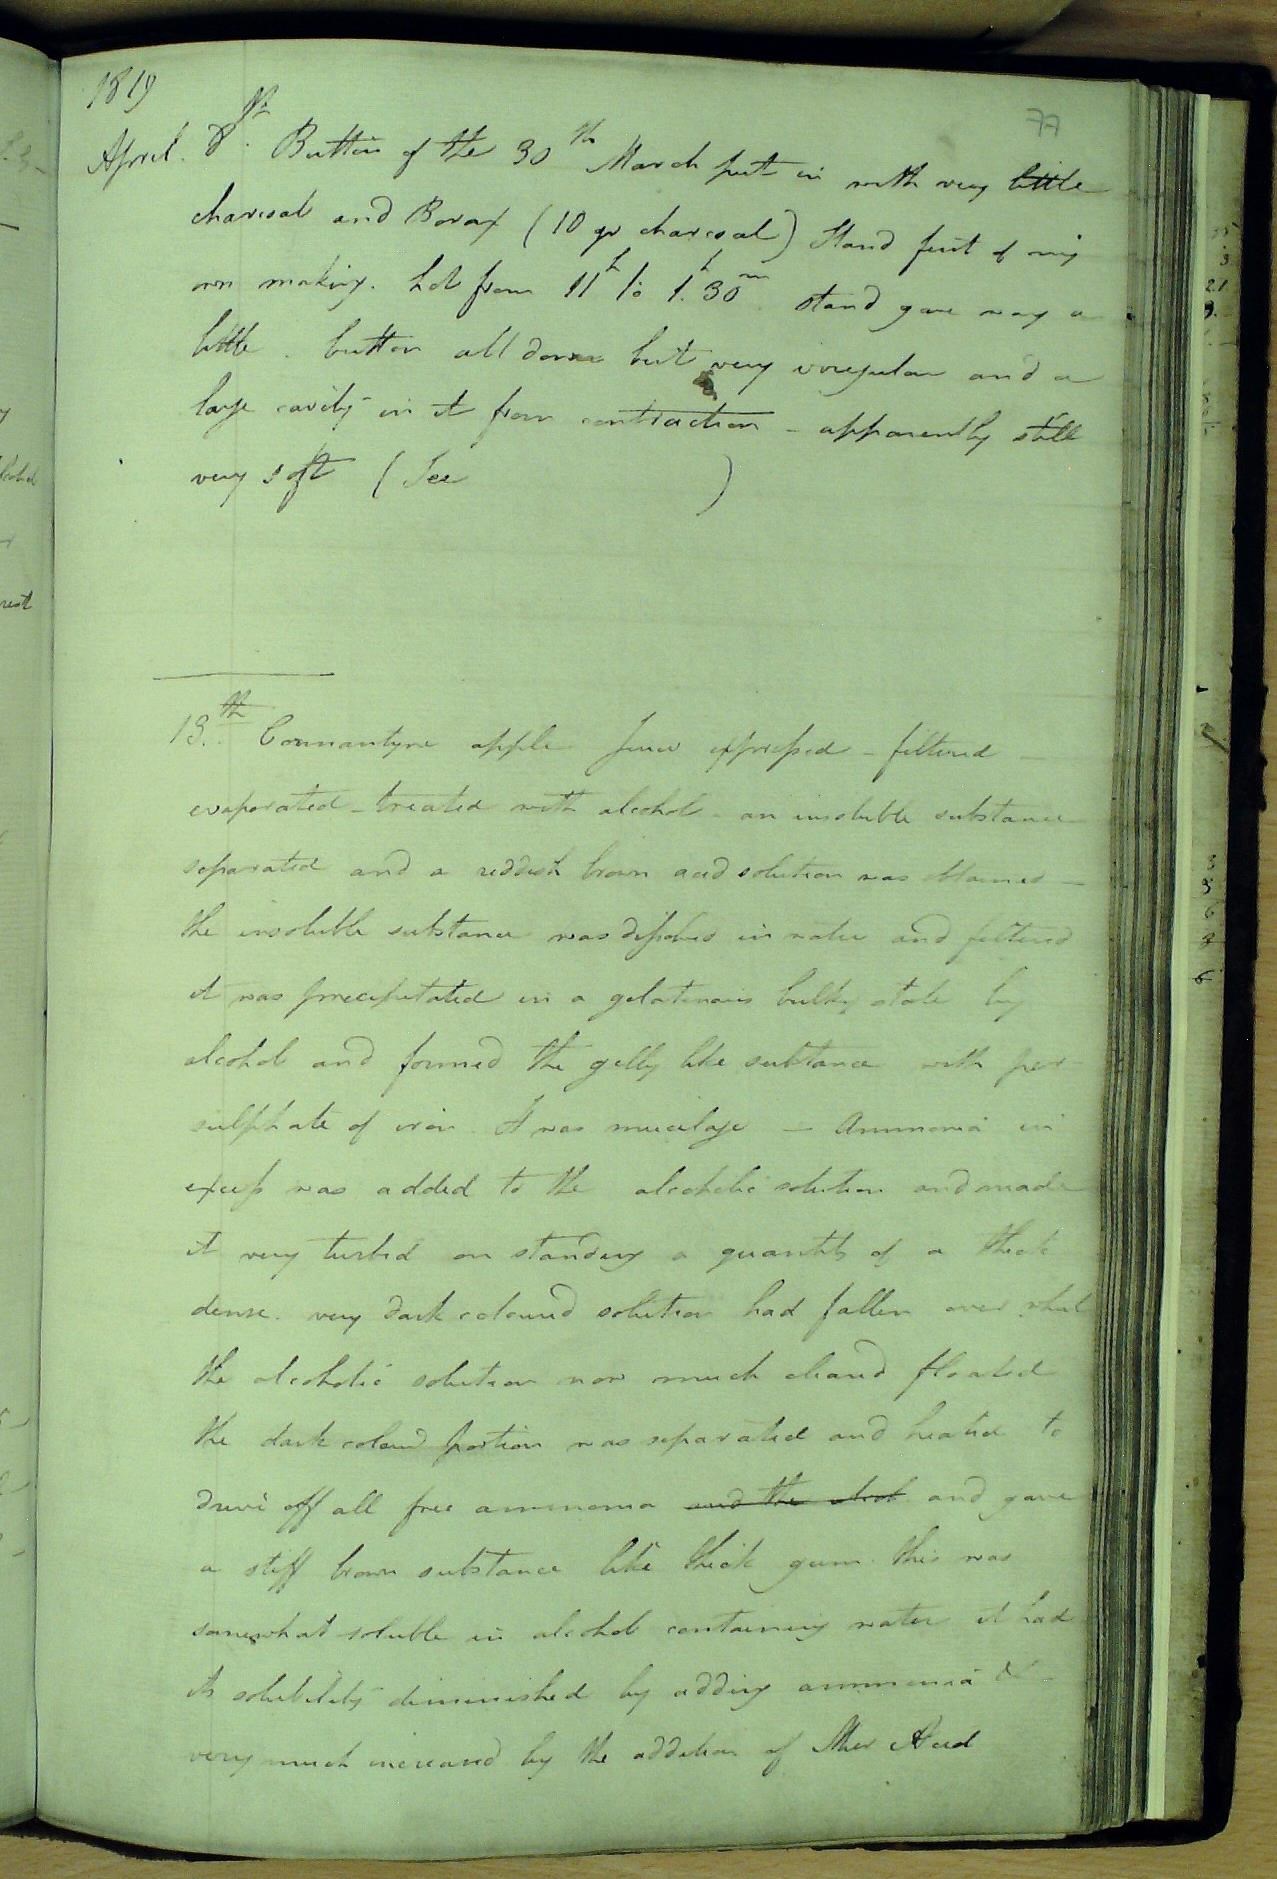 1819
77
April. 8th. Button of the 30th March put in with very little
charcoal and Borax (10 gr charcoal) Stand feet of my
own making. hot from 11h to 1h.30m. stand gave way a
little. button all down but very irregular and a
large cavity in it from contraction - apparently still
very soft (See )
13.th apple Juice expressed - filtered -
evaporated - treated with alcohol - an insoluble substance
separated and a reddish brown acid solution was obtained -
the insoluble substance was dissolved in water and filtered
it was precipitated in a gelatinous bulky state by
alcohol and formed the gelly like substance with per
sulphate of iron. It was mucilage - Ammonia in
excess was added to the alcoholic solution and made
it very turbid on standing a quantity of a thick
dense. very dark coloured solution had fallen over what
the alcoholic solution now much cleard floated
the dark colourd portion was separated and heated to
drive off all free ammonia and the alcoh and gave
a stiff brown substance like thick gum. this was
somewhat soluble in alcohol containing water it had
its solubility diminished by adding ammonia &
very much increased by the addition of Acid